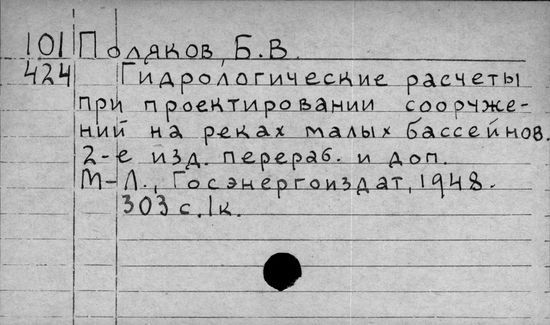 101 Поляков, Б.В.
424 Гидрологические расчеты
при проектировании сооруже-
ний на реках малых бассейнов.
2-е изд. перераб. и доп.
М-Л., Госэнергоиздат, 1948.
303 с. 1к.